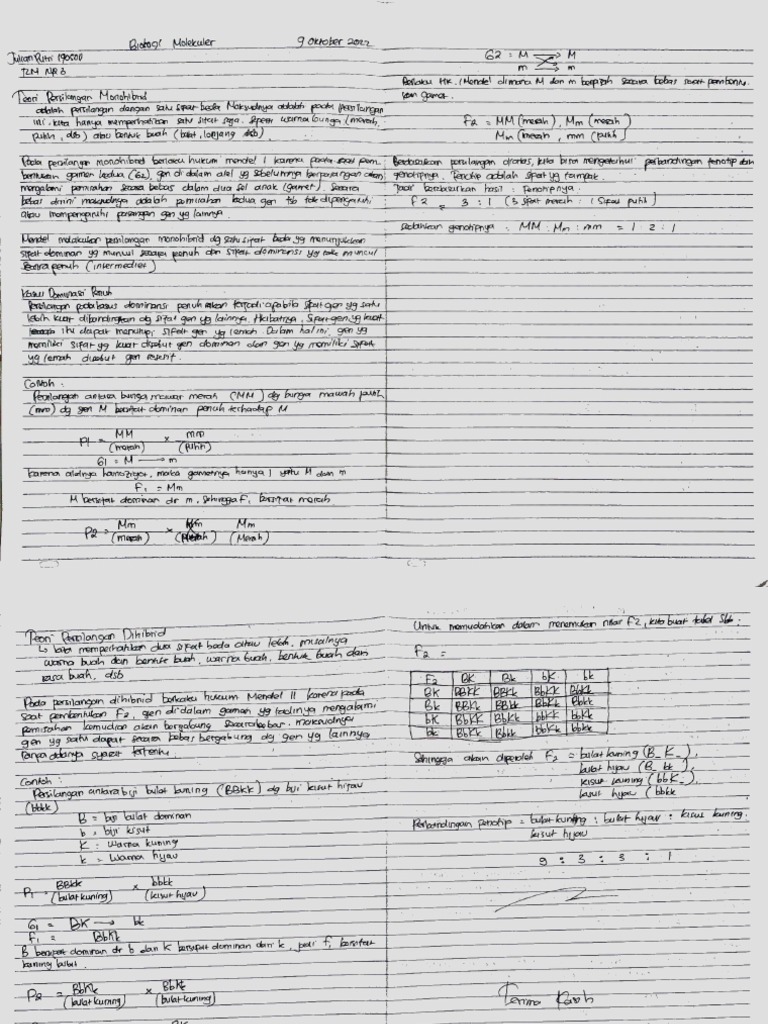 Biologi Molekuler
9 Oktober 2022
Julian Putri 190600
TLM
Teori Persilangan Monohibrid
adalah persilangan dengan satu sifat beda. Maksudnya adalah pada persilangan
ini kita hanya memperhatikan satu sifat saja. Seperti warna bunga (merah,
putih, dsb) atau bentuk buah (bulat, lonjong dsb)
Pada persilangan monohibrid berlaku hukum mendel I karena pada saat pem
bentukan gamet kedua (G2), gen di dalam alel yg sebelumnya berpasangan akan
mengalami pemisahan secara bebas dalam dua sel anak (gamet). Secara
bebas disini maksudnya adalah pemisahan kedua gen tsb tak dipengaruhi
atau mempengaruhi pasangan gen yg lainnya.
Mendel melakukan persilangan monohibrid dg satu sifat beda yg menunjukkan
sifat dominan yg muncul secara penuh dan sifat dominansi yg tak muncul
secara penuh (intermediet)
Kasus Dominasi Penuh
Persilangan pada kasus dominansi penuh akan terjadi apabila sifat gen yg satu
lebih kuat dibandingkan dg sifat gen yg lainnya. Akibatnya, sifat gen yg kuat
itu dapat menutupi sifat gen yg lemah. Dalam hal ini, gen yg
memiliki sifat yg kuat disebut gen dominan dan gen yg memiliki sifat
yg lemah disebut gen resesif.
Contoh :
Persilangan antara bunga mawar merah (MM) dg bunga mawah putih
(mm) dg gen M bersifat dominan penuh terhadap M
P1 = MM × mm
(merah) (putih)
G1 = M → m
karena alelnya homozigot, maka gametnya hanya 1 yaitu M dan m
F1 = Mm
M bersifat dominan dr m, sehingga F1 bersifat merah
P2 = Mm × Mm Mm
(merah) (Merah) (Merah)
G2 = M M
m m
Perlaku HK. Mendel dimana M dan m berpisah secara bebas saat pembentu
kan gamet.
F2 = MM (merah), Mm (merah)
Mm (merah, mm (putih)
Berdasarkan persilangan diatas, kita bisa mengetahui perbandingan fenotip dan
genotipnya. Fenotip adalah sifat yg tampak.
Jadi berdasarkan hasil : Fenotipnya.
F2 = 3 : 1 (3 sifat merah : 1 sifat putih)
Sedangkan genotipnya : MM : Mm : mm = 1 : 2 : 1
Teori Persilangan Dihibrid
↳ kita memperhatikan dua sifat beda atau lebih, misalnya
warna buah dan bentuk buah, warna buah, bentuk buah dan
rasa buah, dsb
Pada persilangan dihibrid berlaku hukum Mendel II karena pada
saat pembentukan F2, gen di dalam gamen yg tadinya mengalami
pemisahan kemudian akan bergabung secara bebas. maksudnya
gen yg satu dapat secara bebas bergabung dg gen yg lainnya
tanpa adanya syarat tertentu.
Contoh :
Persilangan antara biji bulat kuning (BBKK) dg biji kisut hijau
(bbkk)
B = biji bulat dominan
b = biji kisut
K = warna kuning
k = warna hijau
P1 = BBKK × bbkk
(bulat kuning) (kisut hijau)
G1 = BK → bk
F1 = BbKk
B bersifat dominan dr b dan K bersifat dominan dari k, jadi F1 bersifat
kuning bulat.
P2 = BbKk × BbKk
(bulat kuning) (bulat kuning)
BK
Untuk memudahkan dalam menemukan nilai F2, kita buat tabel sbb.
F2 =
F2 BK Bk bK bk
BK BBKK BBKk BbKK BbKk
Bk BBKk BBkk BbKk Bbkk
bK BbKK BbKk bbKK bbKk
bk BbKk Bbkk bbKk bbkk
Sehingga akan diperoleh F2 = bulat kuning (B_K_),
bulat hijau (B_kk),
kisut kuning (bbK_)
kisus hijau (bbkk
Perbandingan fenotip = bulat kuning : bulat hijau : kisus kuning.
kisut hijau
9 : 3 : 3 : 1
Terima Kasih